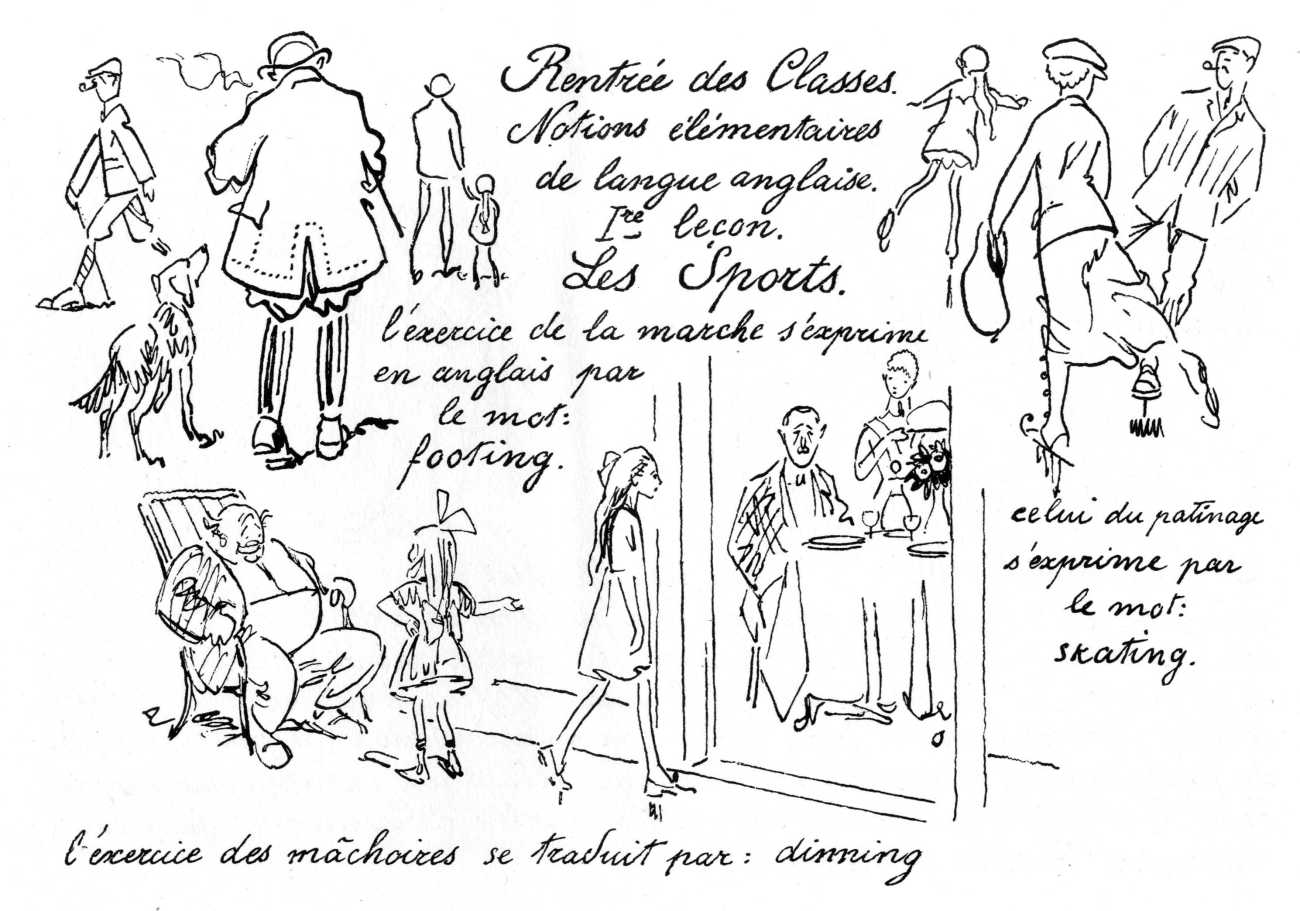 Rentrée des Classes.
Notions élémentaires
de langue anglaise.
Ire leçon.
Les Sports.
l'éxercice de la marche s'éxprime
en anglais par
le mot:
footing.
celui du patinage
s'éxprime par
le mot:
skating.
l'éxercice des mâchoires se traduit par : dinning